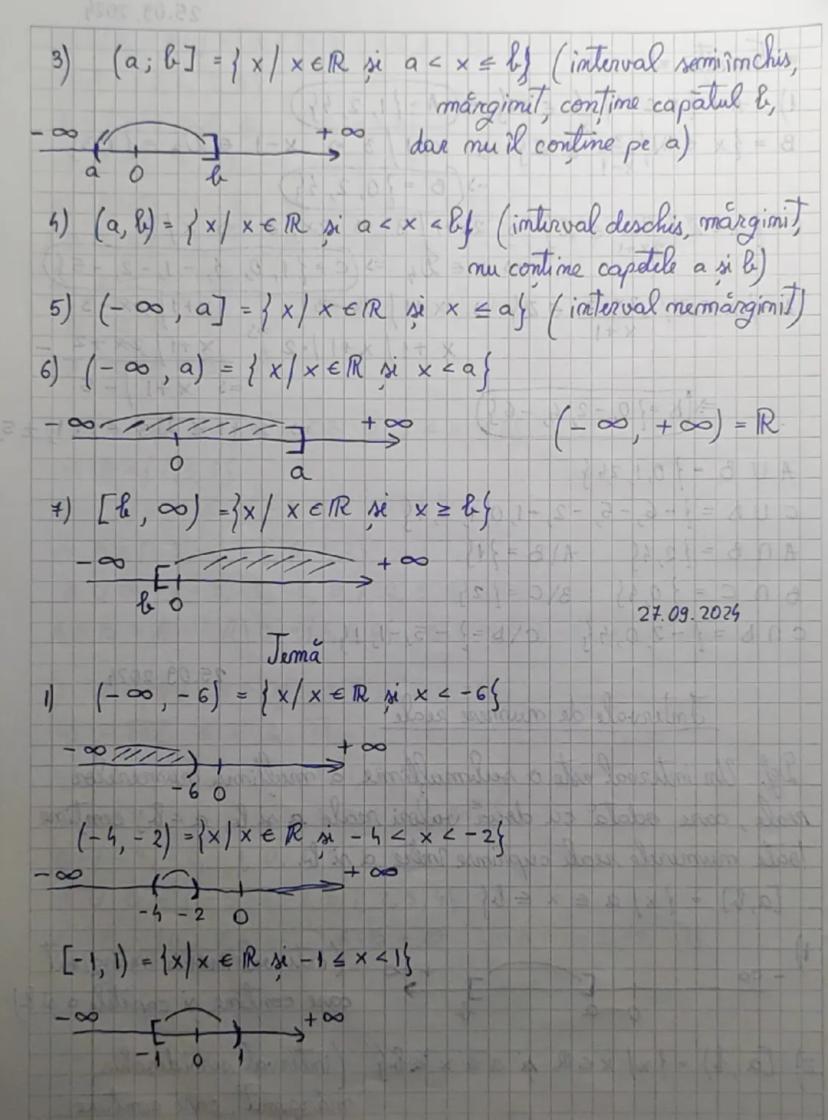 3) (a; b] = {x/ x ∈ ℝ și a < x ≤ b} (interval semiînchis,
mărginit, conține capătul b,
dar nu îl conține pe a)
-∞ +∞
a 0 b
4) (a, b) = {x/ x ∈ ℝ și a < x < b} (interval deschis, mărginit,
nu conține capetele a și b)
5) (-∞, a] = {x/ x ∈ ℝ și x ≤ a} (interval nemărginit)
6) (-∞, a) = {x/ x ∈ ℝ și x < a}
-∞ +∞
0 a
(-∞, +∞) = ℝ
7) [b, ∞) = {x/ x ∈ ℝ și x ≥ b}
-∞ +∞
b 0
27.09.2024
Temă
1) (-∞, -6) = {x/ x ∈ ℝ și x < -6}
-∞ +∞
-6 0
(-4, -2) = {x/ x ∈ ℝ și -4 < x < -2}
-∞ +∞
-4 -2 0
[-1, 1) = {x/ x ∈ ℝ și -1 ≤ x < 1}
-∞ +∞
-1 0 1